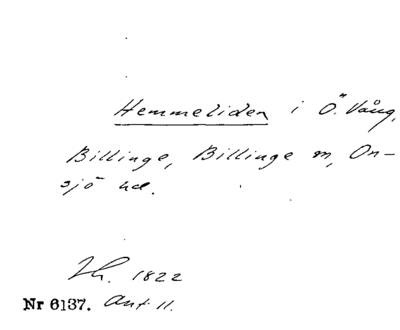 Hemmeliden i Ö. Vång,
Billinge, Billinge m, On-
sjö hd.
Th. 1822
Nr 6137. Ant. 11.